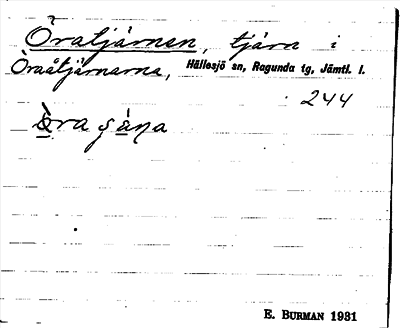 Öratjärnen, tjärn i
Öraåtjärnarna, Hällesjö sn, Ragunda tg, Jämtl. l.
244
E. BURMAN 1931